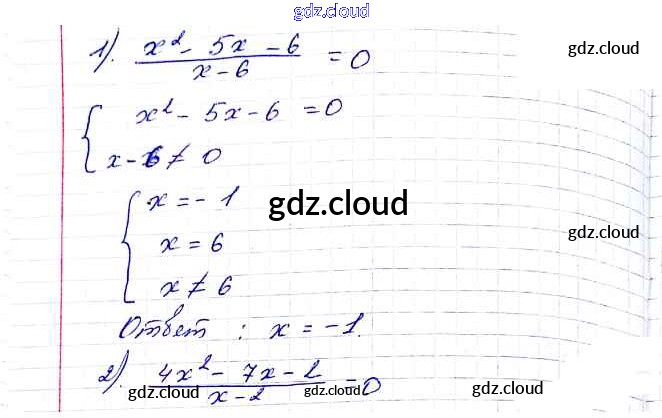 gdz.cloud
1). (x² - 5x - 6)/(x - 6) = 0
gdz.cloud
{ x² - 5x - 6 = 0
x - 6 ≠ 0
{ x = -1
gdz.cloud
x = 6
gdz.cloud
x ≠ 6
Ответ : x = -1.
2). (4x² - 7x - 2)/(x - 2) = 0
gdz.cloud
gdz.cloud
gdz.cloud